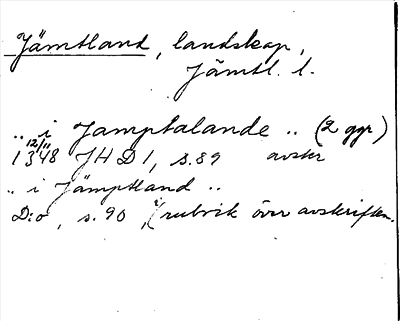 Jämtland, landskap,
Jämtl. l.
.. i Jamptalande .. (2 ggr)
12/11
1348 JHD 1, s. 89 avskr
.. i Jämptland ..
D:o, s. 90, (rubrik över avskriften.